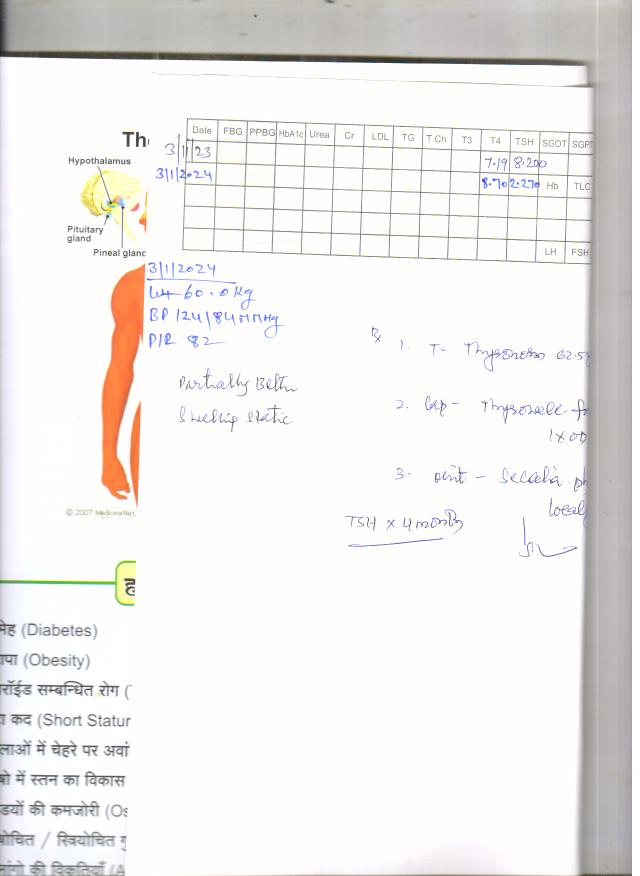 Hypothalamus
Pituitary
gland
Pineal gland
© 2007 MedicineNet.
Date FBG PPBG HbA1c Urea Cr LDL TG T Ch T3 T4 TSH SGOT SGPT
3/1/23 7.19 8.200
3/1/2024 8.70 2.270 Hb TLC
LH FSH
3/1/2024
Wt 60.0 Kg
BP 124/84 MMHg
P/R 82
Partially
Swelling Static
1. T- 62.5
2. Cap-
1x OD
3. oint -
local
TSH x 4 months
(Diabetes)
(Obesity)
सम्बन्धित रोग (
कद (Short Statur
में चेहरे पर
में स्तन का विकास
की कमजोरी (Os
/ स्त्रियोचित
की विकृतियाँ (A